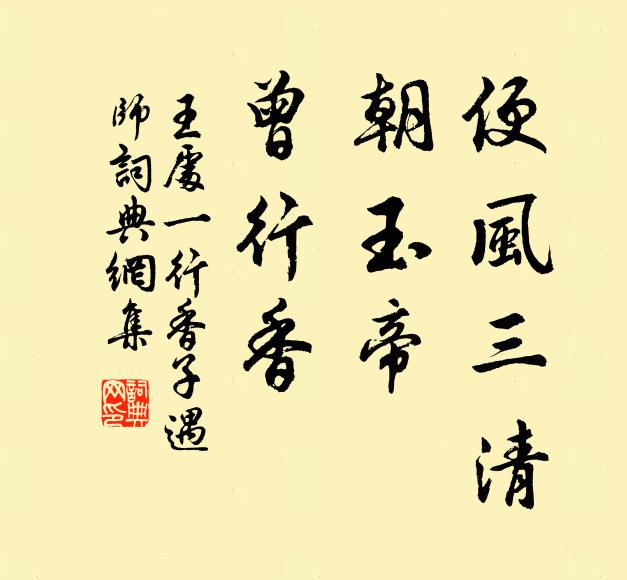 便風三清
朝玉帝
曾行香
王處一行香子遇
師詞典網集
詞典
網印